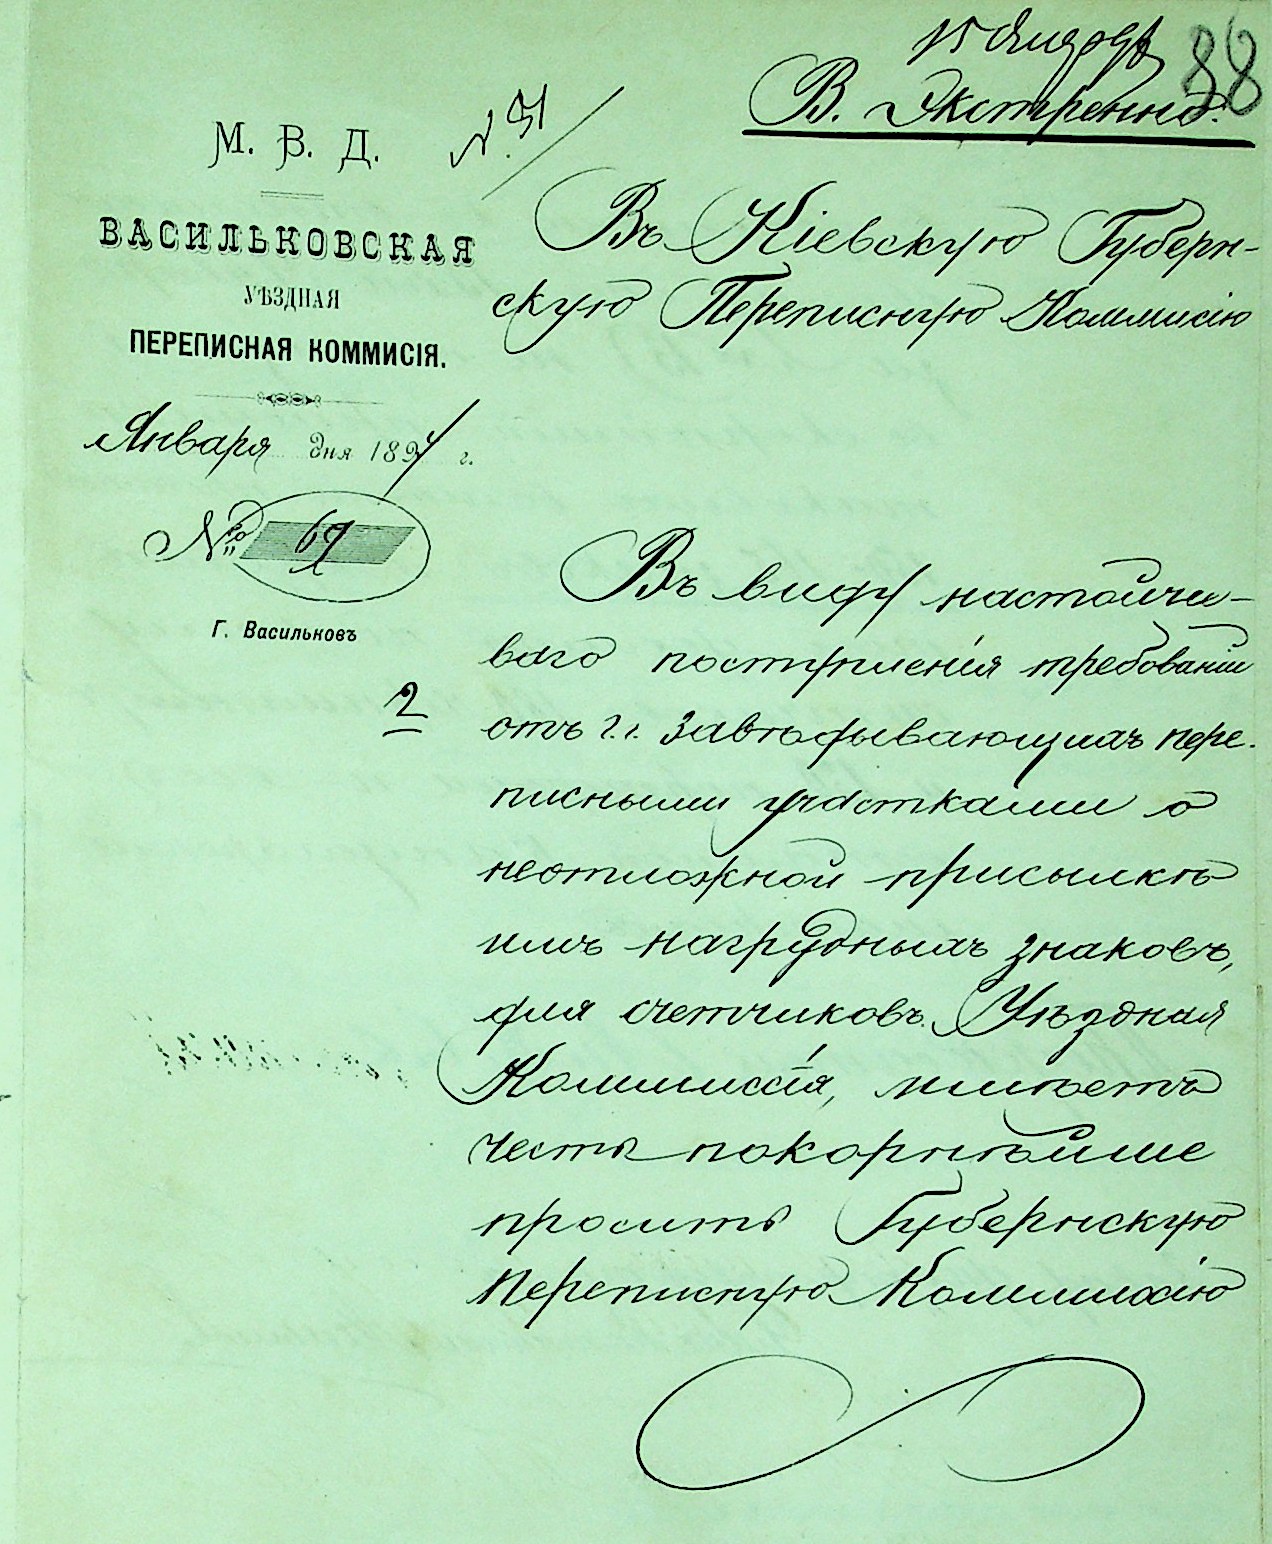 15 Января
88
В. Экстренно.
М. В. Д.
№ 91
ВАСИЛЬКОВСКАЯ
УѢЗДНАЯ
ПЕРЕПИСНАЯ КОММИСІЯ.
Января дня 1897 г.
№ 69
Г. Васильковъ
Въ Кіевскую Губерн-
скую Переписную Коммисію
2
Въ виду настойчи-
ваго поступленія требованій
отъ г.г. Завѣдывающихъ пере-
писными участками о
неотложной присылкѣ
имъ нагрудныхъ знаковъ,
для счетчиковъ. Уѣздная
Коммиссія, имѣетъ
честь покорнѣйше
просить Губернскую
Переписную Коммиссію